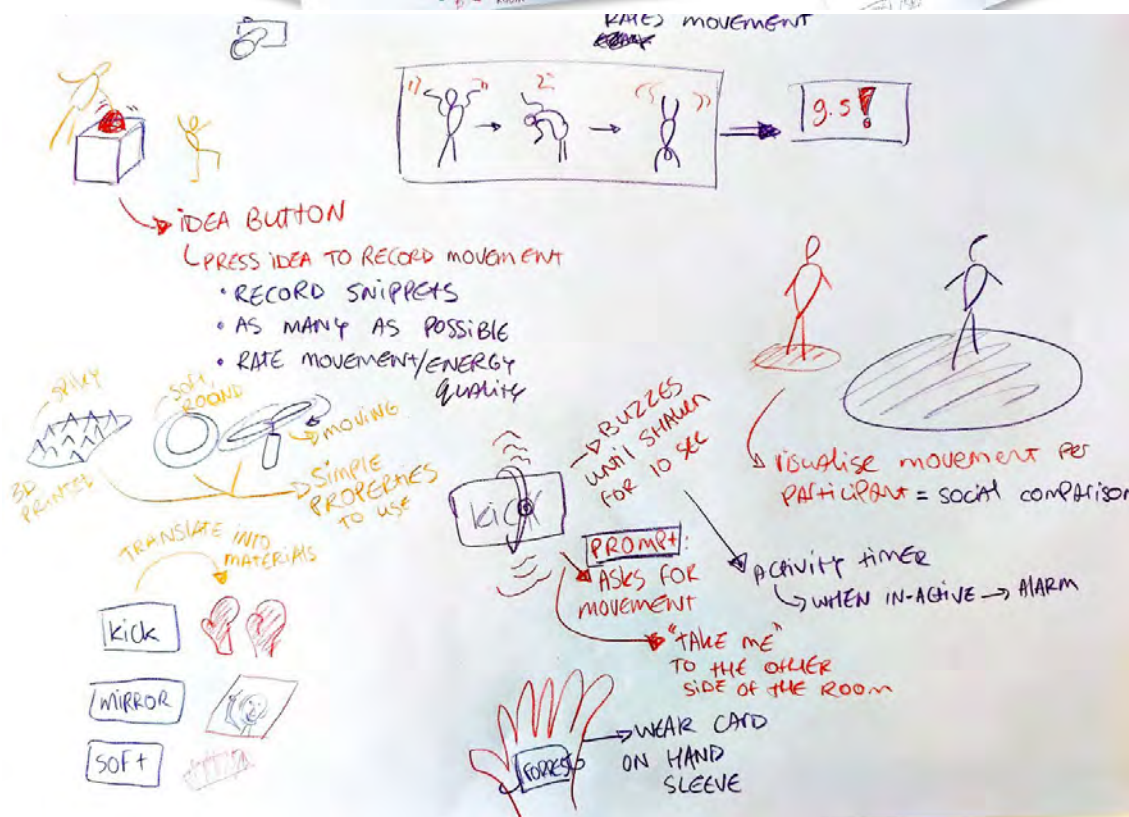 RATES MOVEMENT
1)
2
9.5!
IDEA BUTTON
PRESS IDEA TO RECORD MOVEMENT
• RECORD SNIPPETS
• AS MANY AS POSSIBLE
• RATE MOVEMENT/ENERGY
QUALITY
SPIKY
SOFT,
ROUND
MOVING
3D
PRINTED
SIMPLE
PROPERTIES
TO USE
TRANSLATE INTO
MATERIALS
kick
MIRROR
SOFT
kick
BUZZES
UNTIL SHAKEN
FOR 10 SEC
PROMPT:
ASKS FOR
MOVEMENT
"TAKE ME"
TO THE OTHER
SIDE OF THE ROOM
VISUALISE MOVEMENT PER
PARTICIPANT = SOCIAL COMPARISON
ACTIVITY TIMER
WHEN IN-ACTIVE → ALARM
FORREST
WEAR CARD
ON HAND
SLEEVE